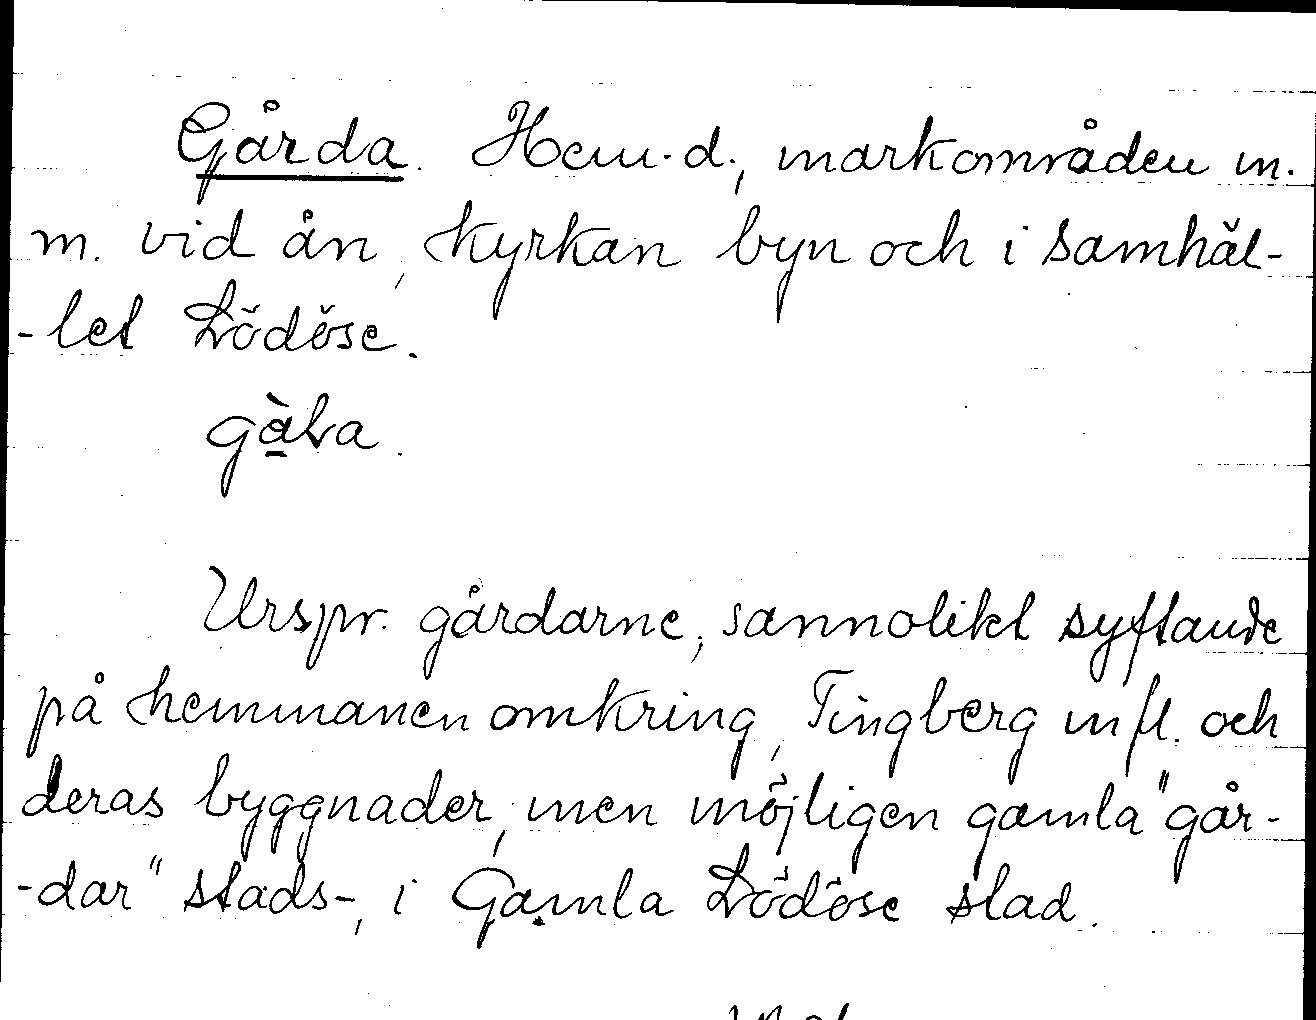 Gårda. Hem.d., markområden m.
m. vid ån, kyrkan byn och i samhäl-
-let Lödöse.
gàLa.
Urspr. gårdarne, sannolikt syftande
på hemmanen omkring, Tingberg mfl. och
deras byggnader, men möjligen gamla "går-
-dar" stads-, i Gamla Lödöse stad.